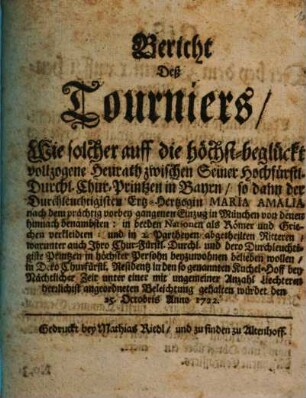 Bericht
Deß
Tourniers/
Wie solcher auff die höchst-beglückt
vollzogene Heurath zwischen Seiner Hochfürstl.
Durchl. Chur-Printzen in Bayrn/ so dann der
Durchleuchtigisten Ertz-Hertzogin MARIA AMALIA
nach dem prächtig vorbey gangenen Einzug in München von denen
hinnach benambsten: in beeden Nationen als Römer und Grie-
chen verkleideten/ und in 2. Partheyen abgetheilten Rittern/
worunter auch Ihro Chur-Fürstl. Durchl. und dero Durchleuchti-
giste Printzen in höchster Persohn beyzuwohnen belieben wollen/
in Dero Churfürstl. Residentz in den so genannten Kuchel-Hoff bey
Nächtlicher Zeit unter einer mit ungemeiner Anzahl Liechteren
herrlichist angeordneten Beleichtung gehalten würdet den
25. Octobris Anno 1722.
Gedruckt bey Mathias Riedl/ und zu finden zu Altenhoff.